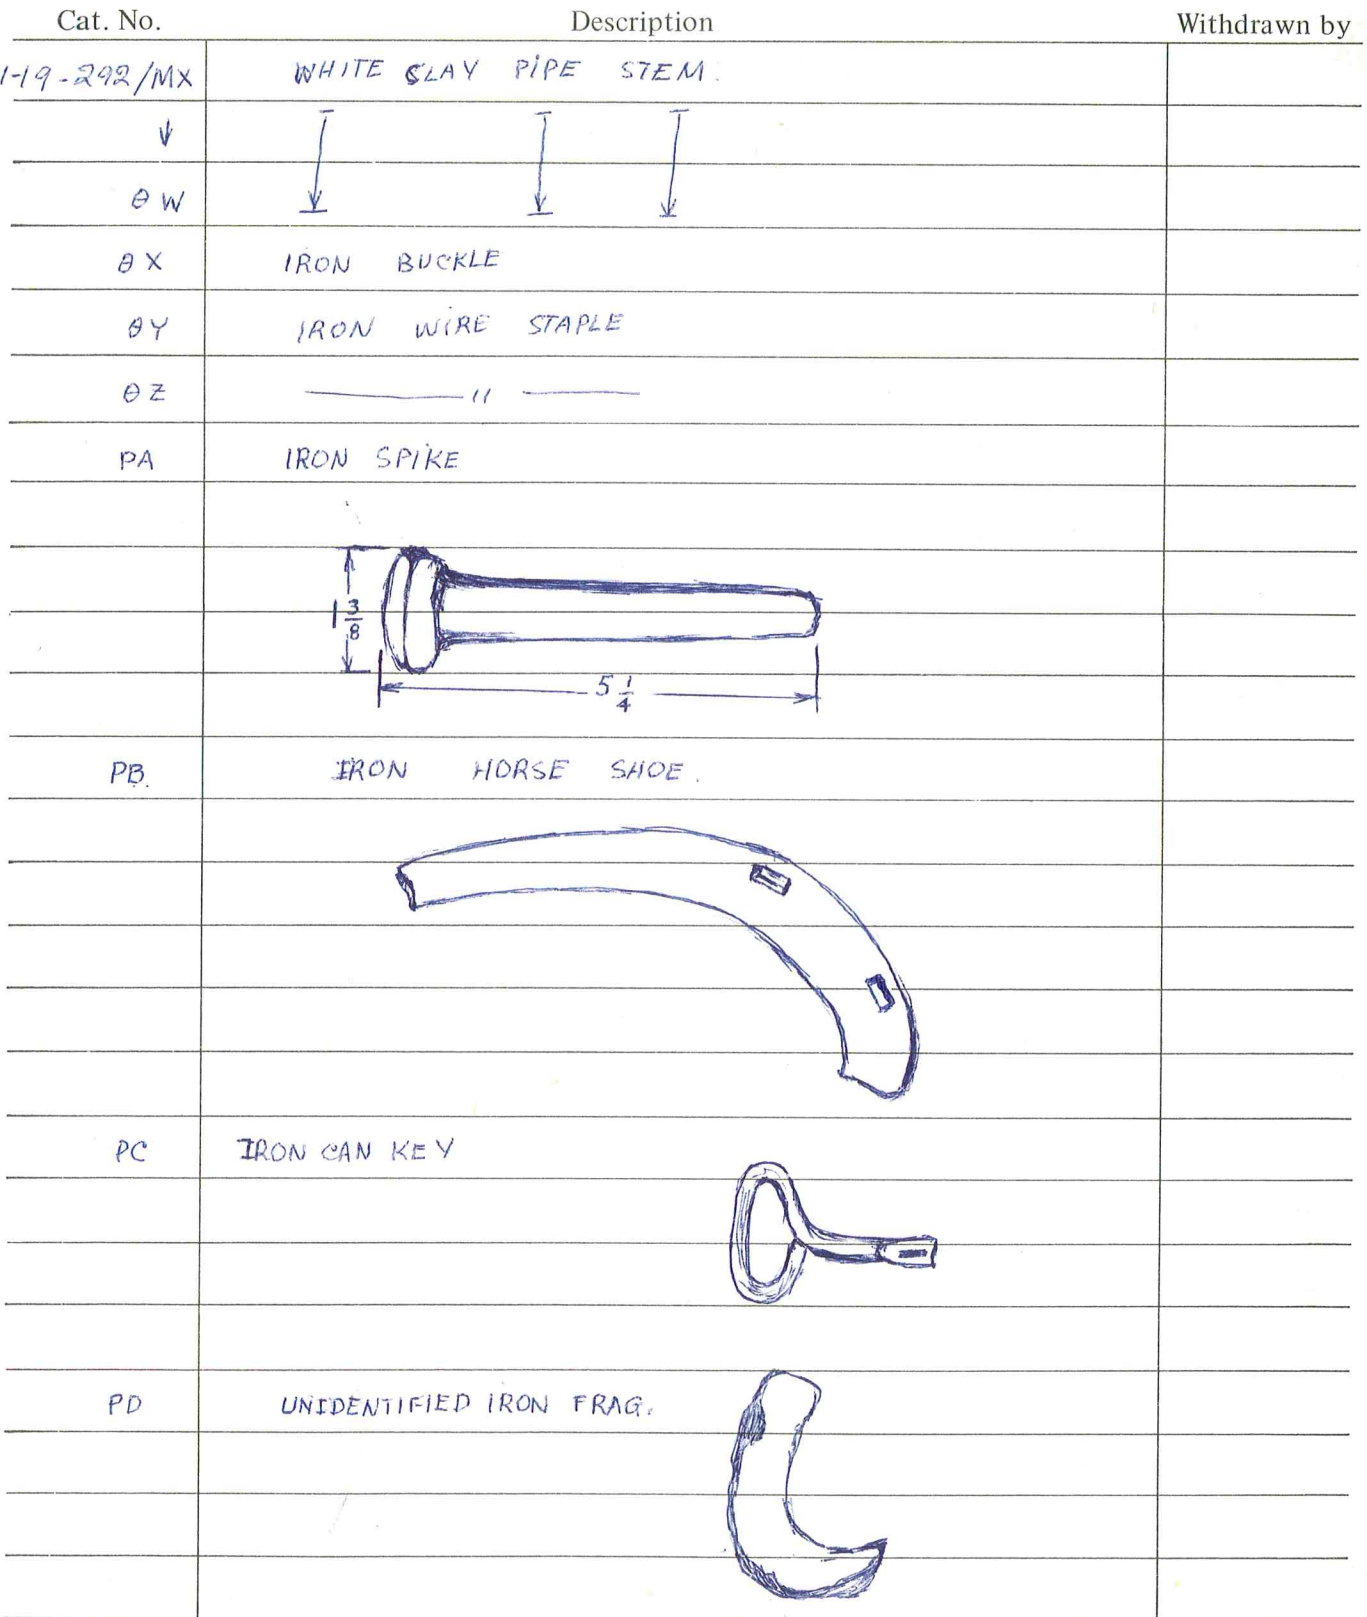 Cat. No. Description Withdrawn by
1-19-292/MX WHITE CLAY PIPE STEM.
↓
θW
θX IRON BUCKLE
θY IRON WIRE STAPLE
θZ —— " ——
PA IRON SPIKE
1 3/8
5 1/4
PB. IRON HORSE SHOE.
PC IRON CAN KEY
PD UNIDENTIFIED IRON FRAG.